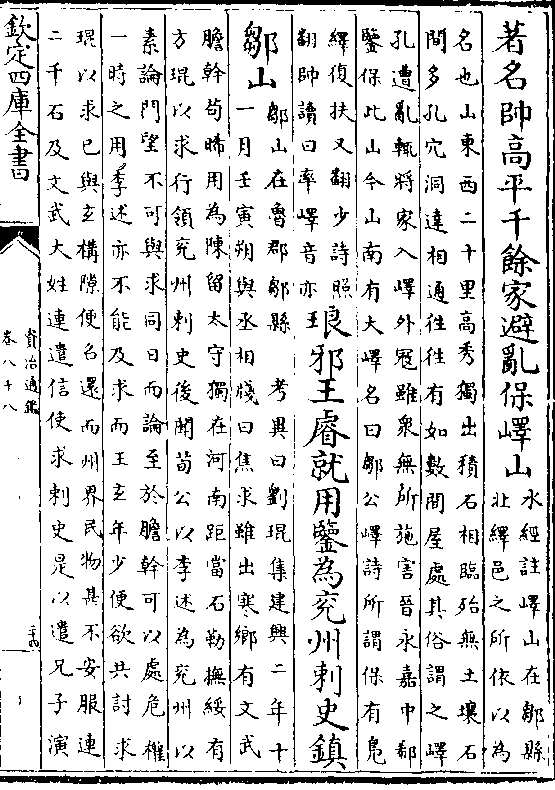 著名帥高平千餘家避亂保嶧山水經註山在鄒縣北繹邑之所依以為
名也山東西二十里高秀獨出積石相臨殆無土壤石
間多孔穴洞達相通往往有如數間屋處其俗謂之嶧
孔遭亂輒將家入嶧外寇雖衆無所施害晉永嘉中郗
鑒保此山今山南有大嶧名曰鄒公嶧詩所謂保有鳬
繹侯扶又翻少詩照翻帥讀曰率嶧音亦琅邪王睿就用鑒為兖州刺史鎮
鄒山鄒山在魯郡鄒縣 考異曰劉琨集建興二年十一月壬寅朔與丞相牋曰焦求雖出寒鄉有文武
膽幹荀晞用為陳留太守獨在河南距當石勒撫綏有
方琨以求行領兖州刺史後聞荀公以李述為兖州以
素論門望不可與求同日而論至於膽幹可以處危權
一時之用李述亦不能及求而王玄年少便欲共討求
琨以求已與玄構隙便召還而州界民物甚不安服連
二千石及文武大姓連遣信使求刺史是以遣兄子演
欽定四庫全書
資治通鑑
卷八十八